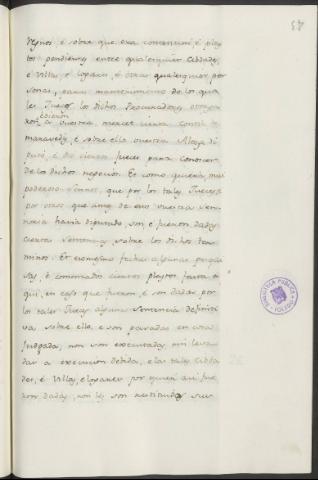 43
Reynos, é sobre que, era contencion, é pley
tos pendientes entre qualesquier Cibdades,
é Villas, é logares, é otras qualesquier per
sonas, para mantenimiento de los qua
les Jueces los dichos Procuradores otorga
ron á vuestra merced ciento
maravedis, é sobre ello vuestra Alteza di
putó, é dió ciertos Jueces para conocer
de los dichos negocios. Et como quiera, mui
poderoso Sennor, que por los tales Jueces é
por otros que antes de eso vuestra Sen
noria havia diputado, son é fueron dadas
ciertas Sentencias sobre los dichos ter
minos. Et eso mesmo fechas algunas pesqui
sas, é comenzados ciertos pleytos fasta a
qui, en caso que fueron, é son dadas por
los tales Jueces algunas Sentencias definiti
vas sobre ello, e son pasadas en cosa
Juzgada, non son executadas nin leva
das a execucion debida, e las tales Cibda
des, é Villas, e logares por quien asi fue
ron dadas, non les son restituidos sus
BIBLIOTECA PUBLICA
TOLEDO